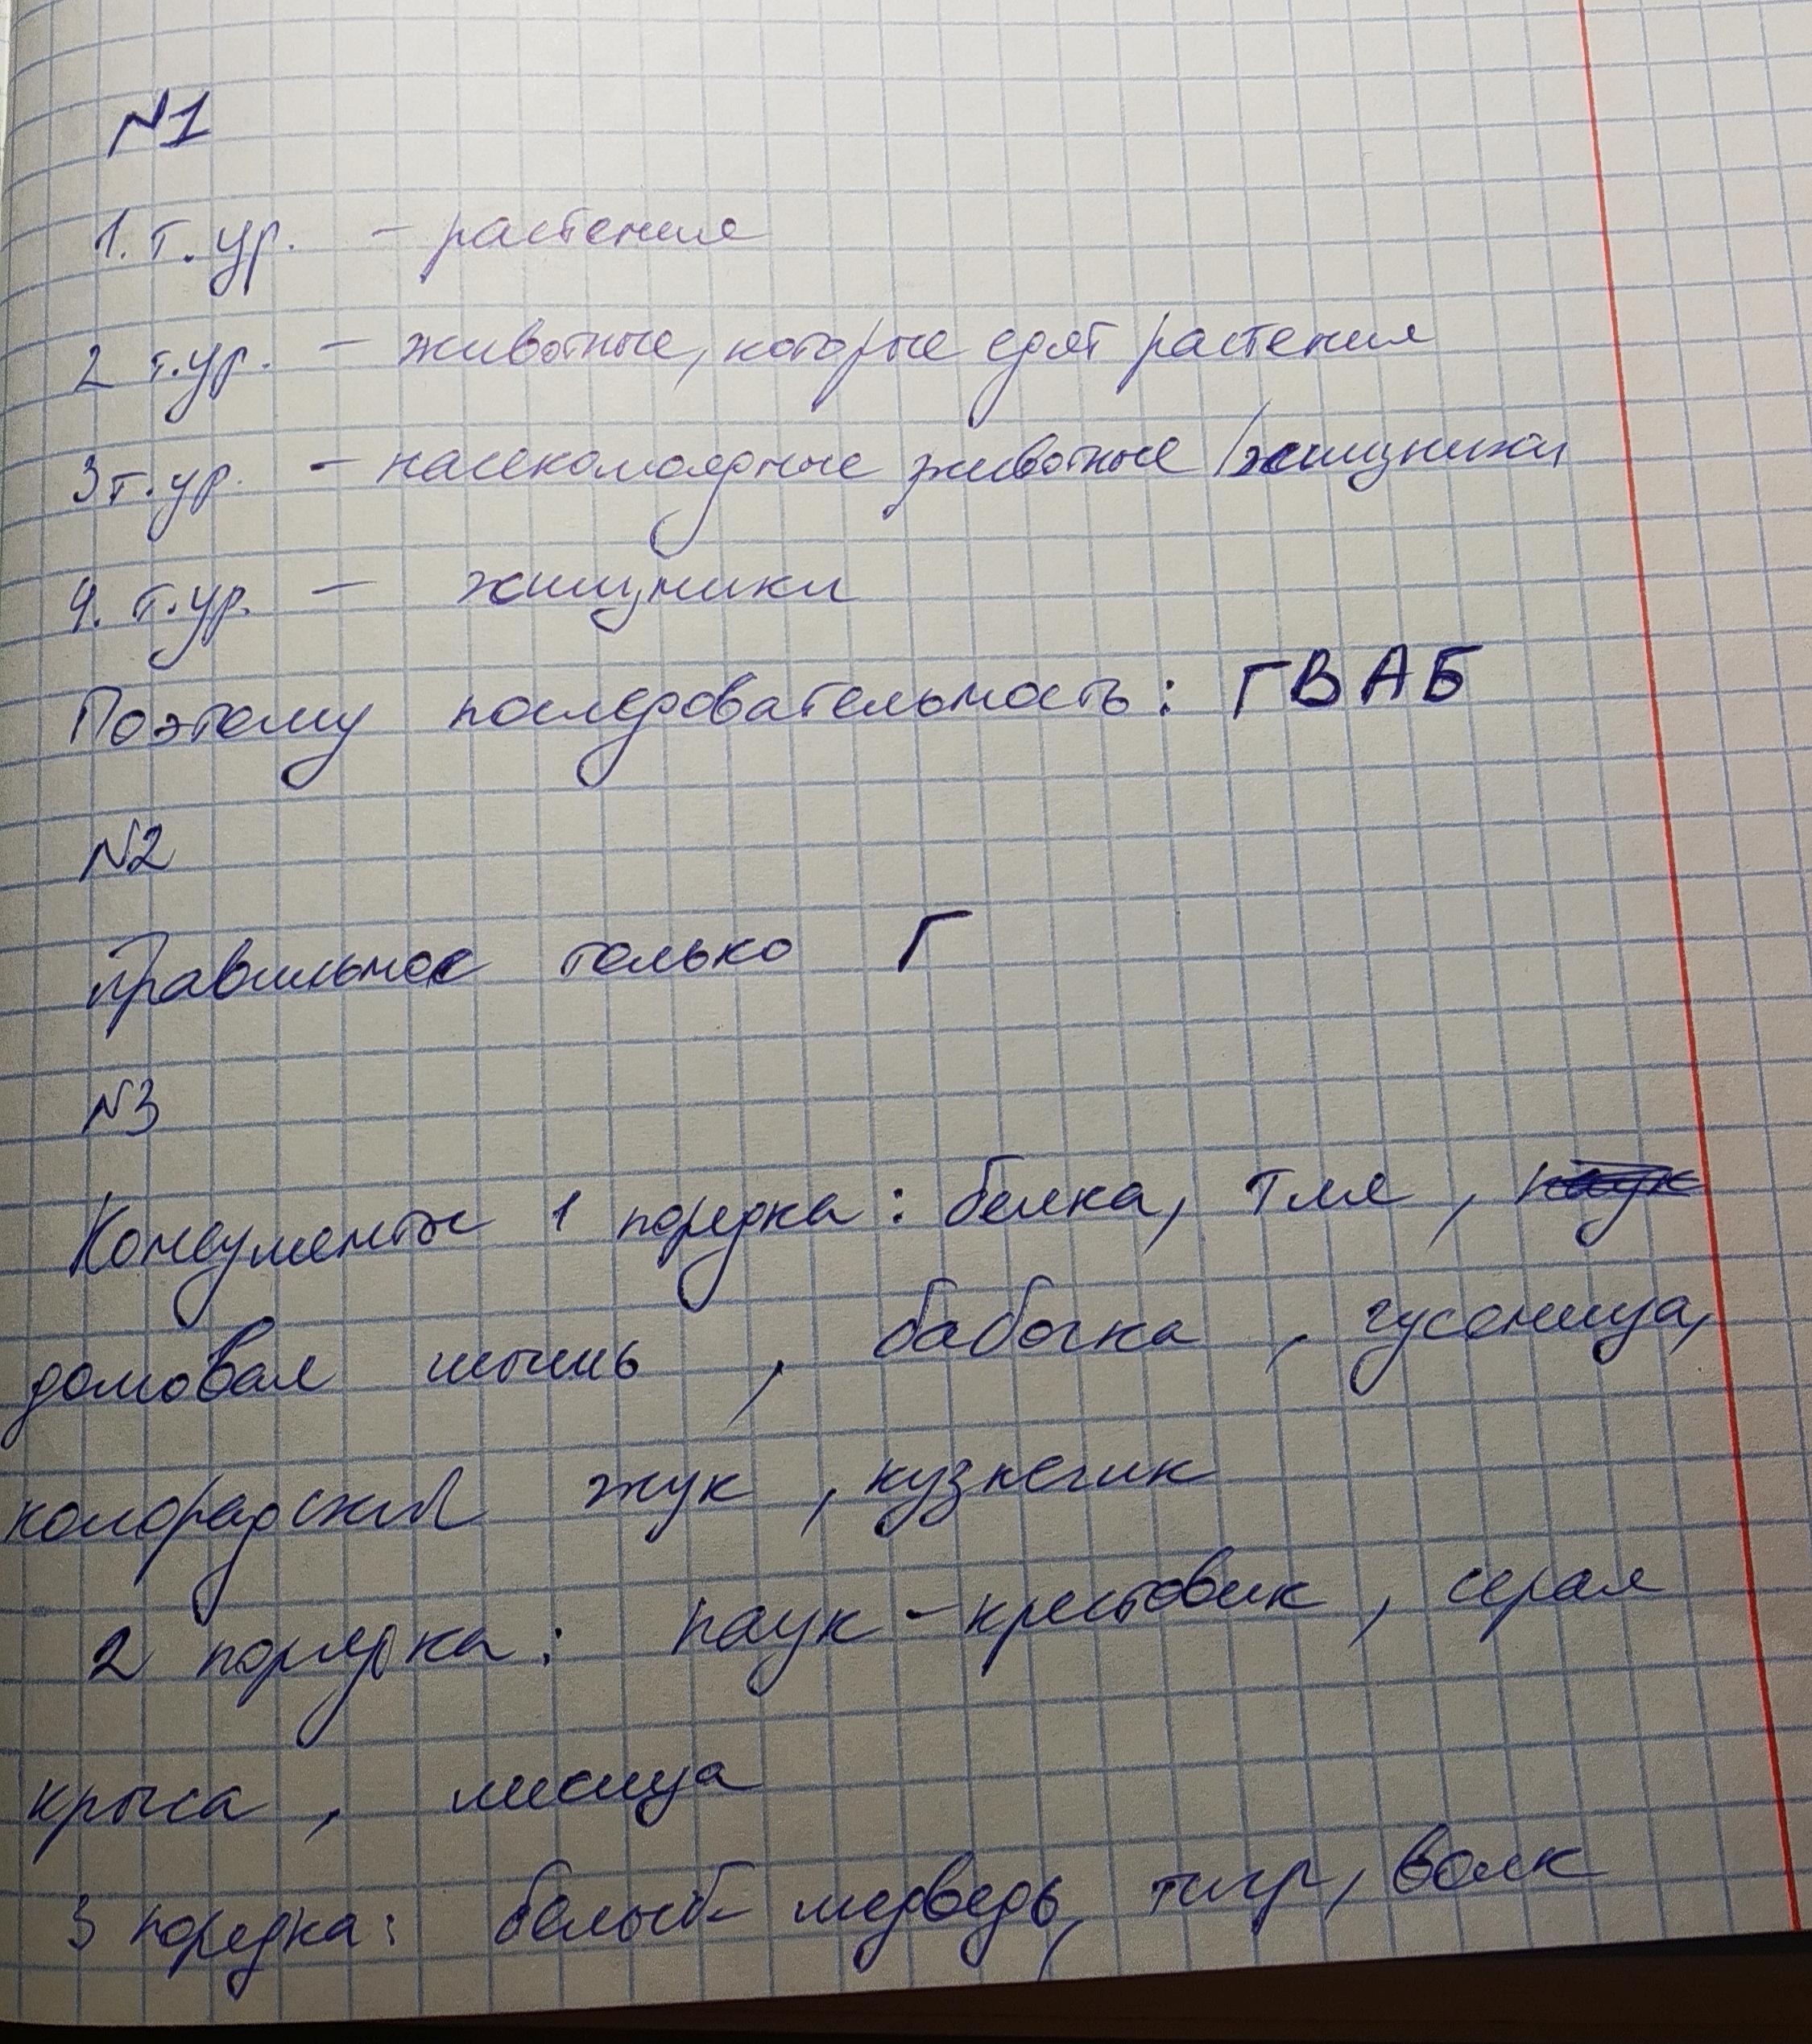 №1
1. т. ур. – растения
2 т. ур. – животные, которые едят растения
3 т. ур. – насекомоядные животные /хищники
4. т. ур. – хищники
Поэтому последовательность: ГВАБ
№2
Правильное только Г
№3
Консументы 1 порядка: белка, тля, паук
домовая мышь, бабочка, гусеница,
колорадский жук, кузнечик
2 порядка: паук-крестовик, серая
крыса, лисица
3 порядка: белый медведь, тигр, волк